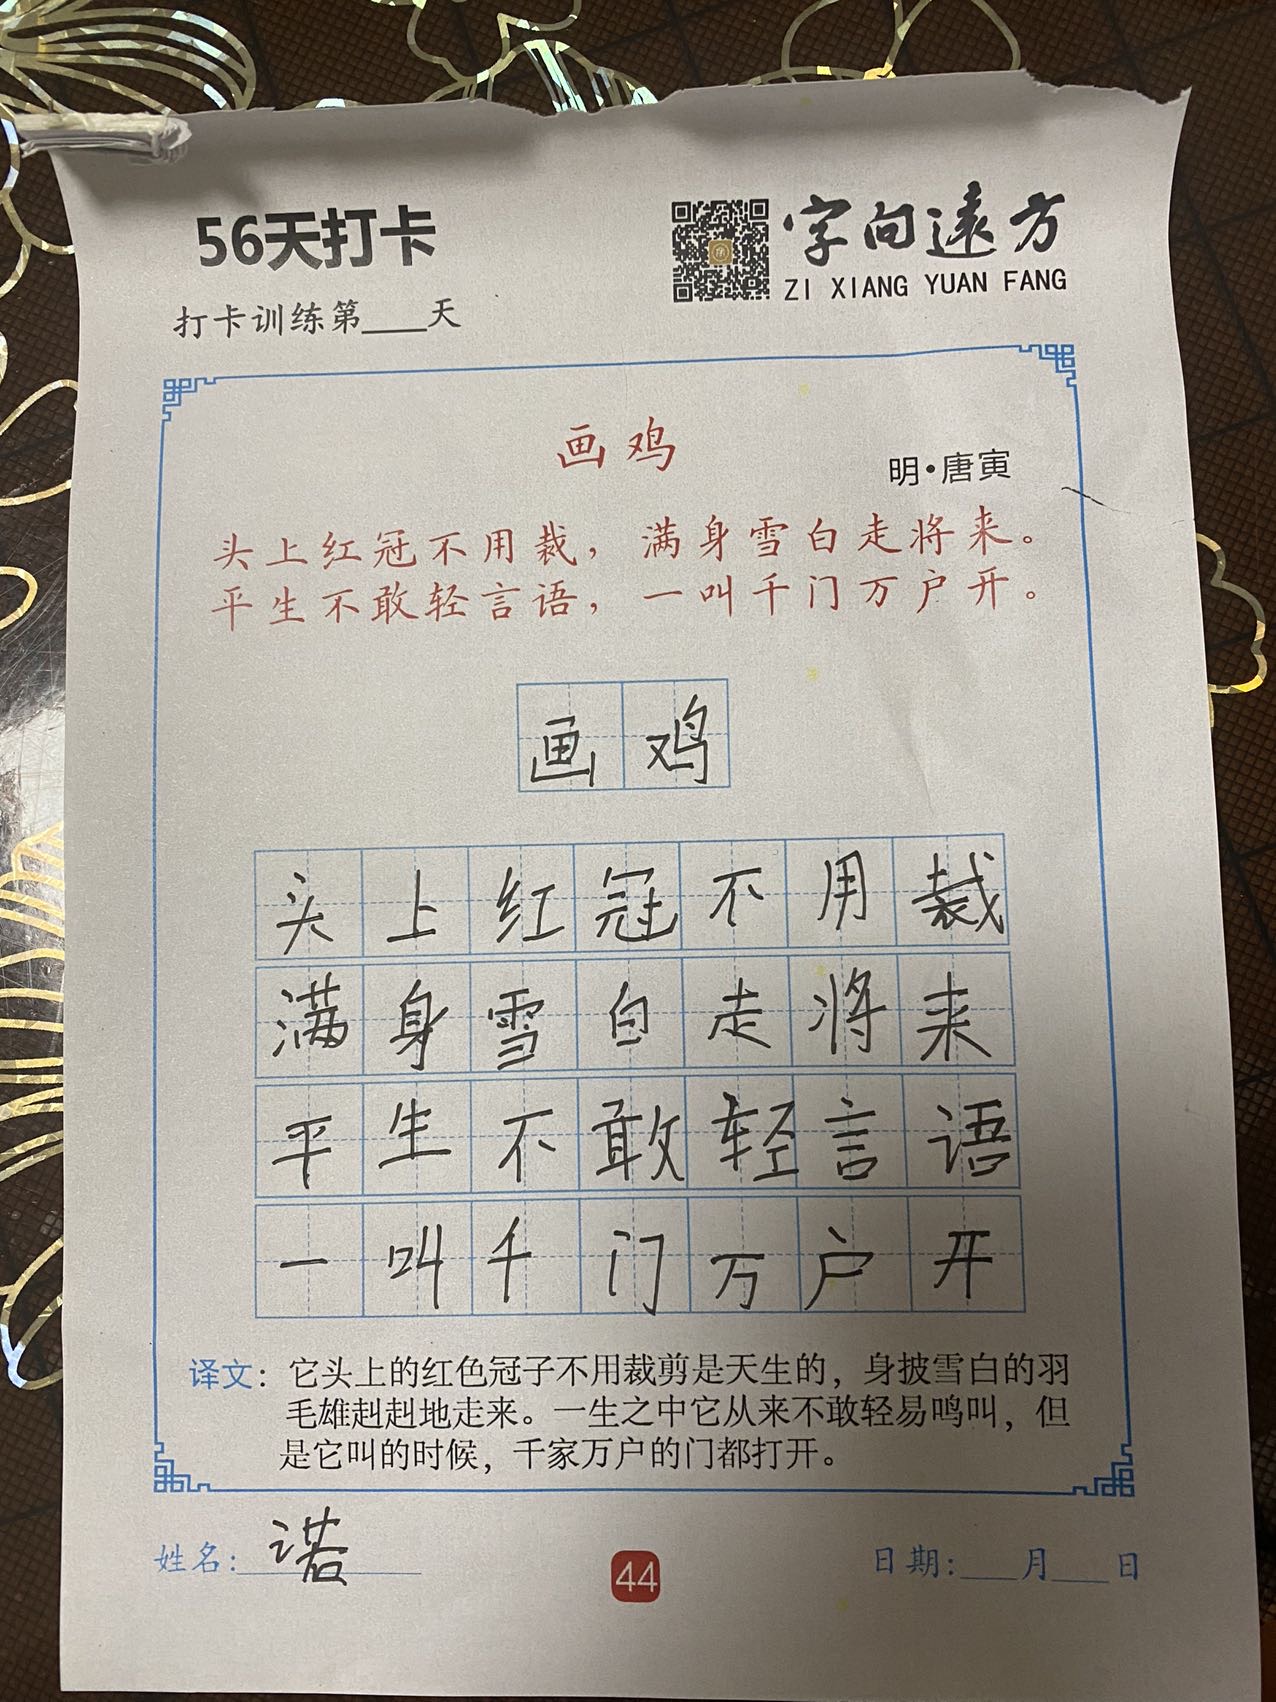 56天打卡
字向遠方
ZI XIANG YUAN FANG
打卡训练第___天
画鸡
明·唐寅
头上红冠不用裁，满身雪白走将来。
平生不敢轻言语，一叫千门万户开。
画鸡
头上红冠不用裁
满身雪白走将来
平生不敢轻言语
一叫千门万户开
译文：它头上的红色冠子不用裁剪是天生的，身披雪白的羽
毛雄赳赳地走来。一生之中它从来不敢轻易鸣叫，但
是它叫的时候，千家万户的门都打开。
姓名：诺
44
日期：___月___日